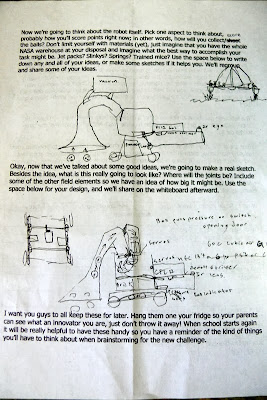 Now we're going to think about the robot itself. Pick one aspect to think about,
probably how you'll score points right now; in other words, how will you collect
the balls? Don't limit yourself with materials (yet), just imagine that you have the whole
NASA warehouse at your disposal and imagine what the best way to accomplish your
task might be. Jet packs? Slinkys? Springs? Trained mice? Use the space below to write
down any and all of your ideas, or make some sketches if it helps you. We'll regroup
and share some of your ideas.
Vacuum
Okay, now that we've talked about some good ideas, we're going to make a real sketch.
Besides the idea, what is this really going to look like? Where will the joints be? Include
some of the other field elements so we have an idea of how big it might be. Use the
space below for your design, and we'll share on the whiteboard afterward.
pressure or switch
opening door
servos
I want you guys to all keep these for later. Hang them one your fridge so your parents
can see what an innovator you are, just don't throw it away! When school starts again
it will be really helpful to have these handy so you have a reminder of the kind of things
you'll have to think about when brainstorming for the new challenge.